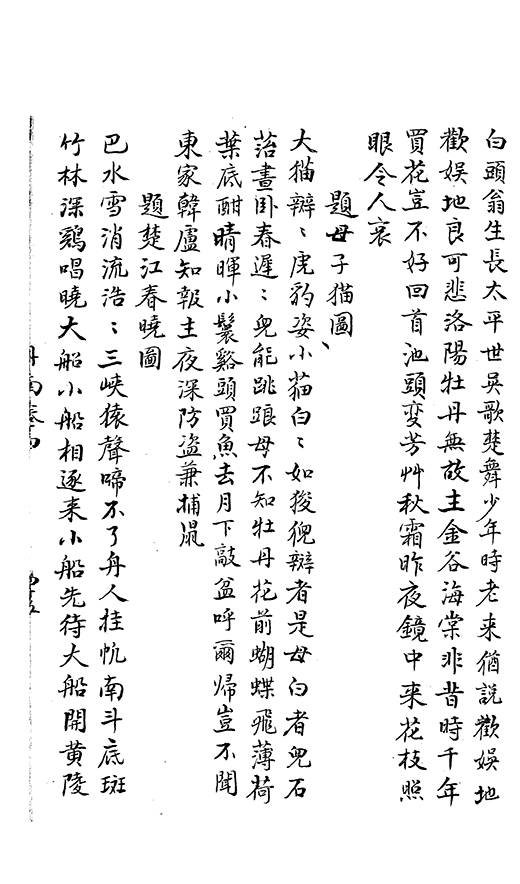 白頭翁生長太平世吳歌楚舞少年時老来猶說歡娛地
歡娛地良可悲洛陽牡丹無故主金谷海棠非昔時千年
買花豈不好回首池頭變芳艸秋霜昨夜鏡中来花枝照
眼令人哀
題母子猫圖
大猫辮〻虎豹姿小猫白〻如狻猊辮者是母白者兒石
菭晝卧春遲〻兒能跳踉母不知牡丹花前蝴蝶飛薄荷
葉底酣晴暉小鬟谿頭買魚去月下敲盆呼爾歸豈不聞
東家韓盧知報主夜深防盗兼捕鼠
題楚江春曉圖
巴水雪消流浩〻三峽猿聲啼不了舟人挂帆南斗底斑
竹林深鷄唱曉大船小船相逐来小船先待大船開黄陵